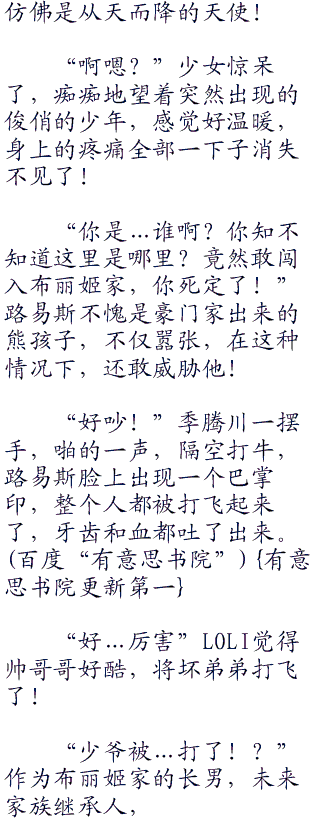 仿佛是从天而降的天使！
“啊嗯？”少女惊呆
了，痴痴地望着突然出现的
俊俏的少年，感觉好温暖，
身上的疼痛全部一下子消失
不见了！
“你是…谁啊？你知不
知道这里是哪里？竟然敢闯
入布丽姬家，你死定了！”
路易斯不愧是豪门家出来的
熊孩子，不仅嚣张，在这种
情况下，还敢威胁他！
“好吵！”季腾川一摆
手，啪的一声，隔空打牛，
路易斯脸上出现一个巴掌
印，整个人都被打飞起来
了，牙齿和血都吐了出来。
(百度“有意思书院”){有意
思书院更新第一}
“好…厉害”LOLI觉得
帅哥哥好酷，将坏弟弟打飞
了！
“少爷被…打了！？”
作为布丽姬家的长男，未来
家族继承人，